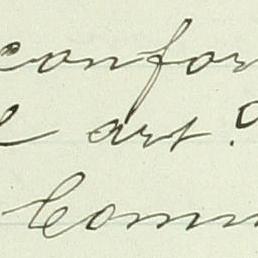 confor
art.
Comm